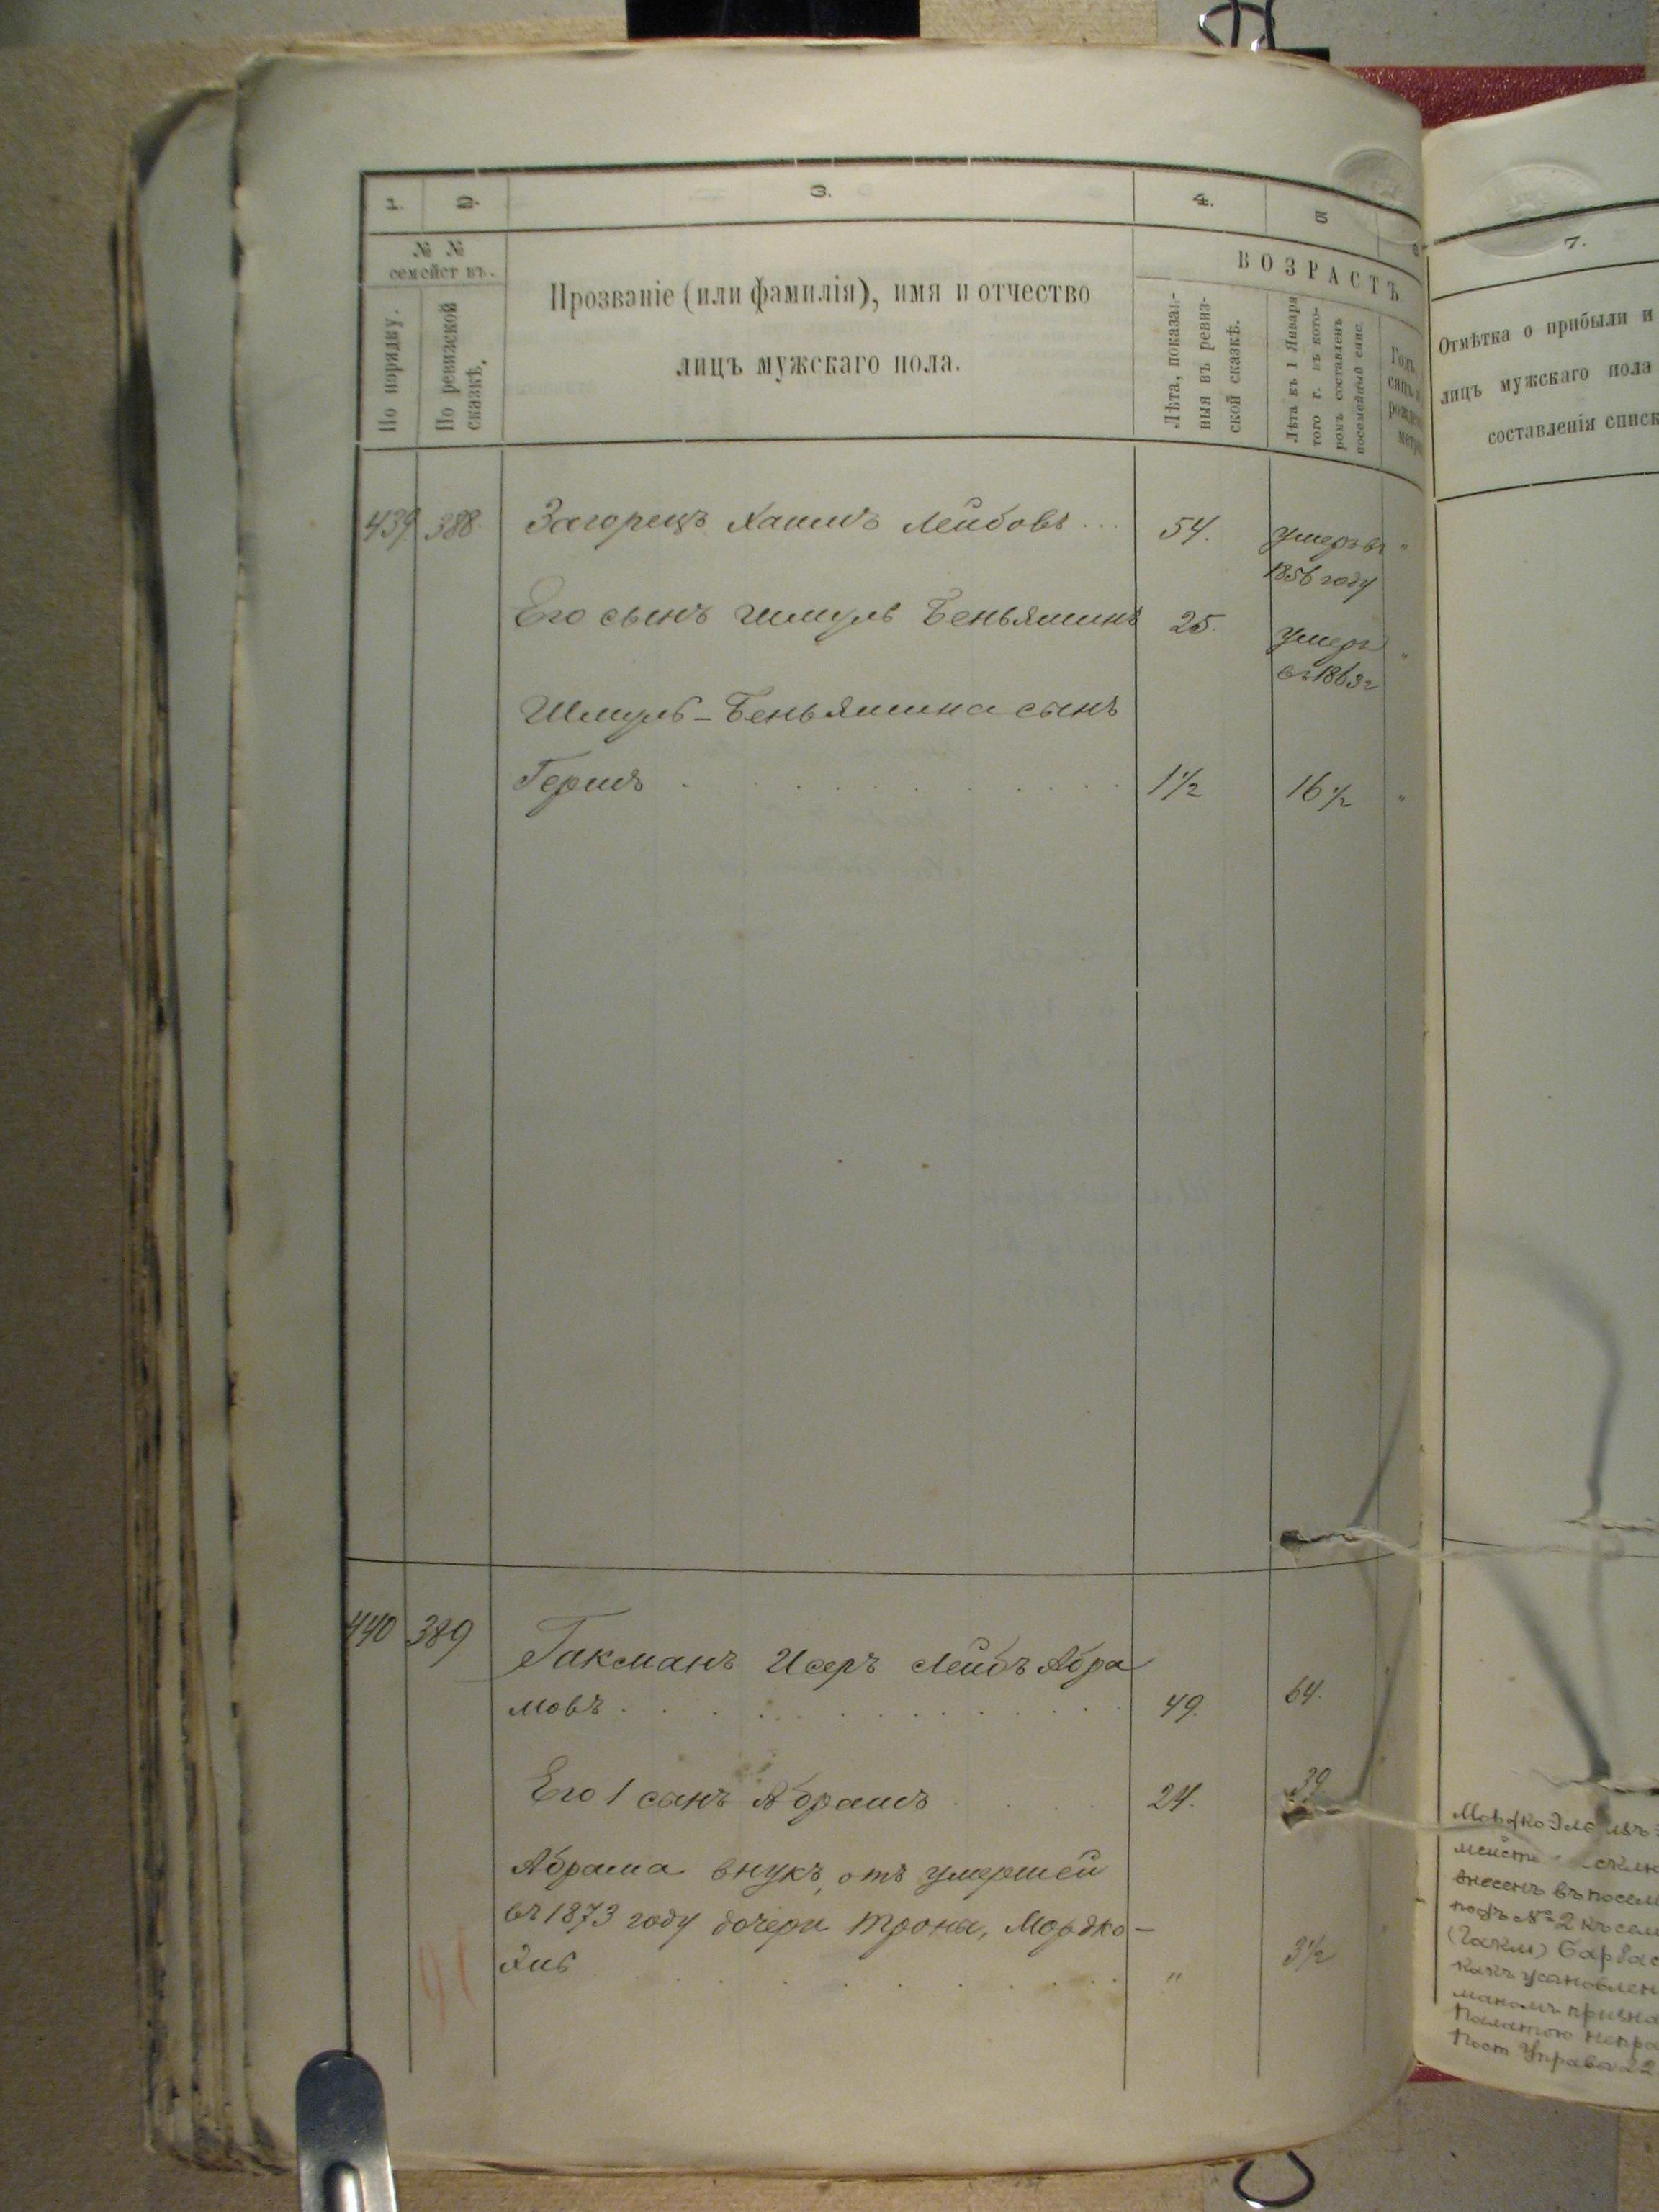 1. 2. 3. 4. 5
№ №
семействъ.
По порядку.
По ревизской
сказкѣ.
Прозваніе (или фамилія), имя и отчество
лицъ мужскаго пола.
ВОЗРАСТЪ
Лѣта, показан-
ныя въ ревиз-
ской сказкѣ.
Лѣта къ 1 Января
того г. въ кото-
ромъ составленъ
посемейный спис.
439 388. Загорецъ Хаимъ Лейбовъ ... 54. умеръ въ "
1856 году
Его сынъ Шмуль Беньяминъ 25. умеръ "
въ 1863 г
Шмуль-Беньямина сынъ
Гершъ 1 1/2 16 1/2 "
440 389 Гакманъ Исеръ Лейбъ Абра
мовъ 49. 64.
Его 1 сынъ Абрамъ 24. 39
Абрама внукъ, отъ умершей
въ 1873 году дочери Троны, Мордко-
" 3 1/2
7.
Отмѣтка о прибыли и
лицъ мужскаго пола
составленія списк
Мордко
внесенъ въ посем
подъ № 2 къ сем
(Гакм)
какъ установлен
маномъ призна
Палатою непра
Пост Управы 22